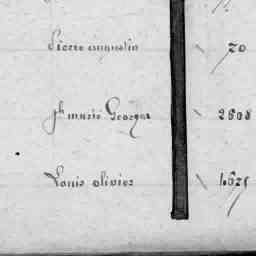 Pierre augustin 70
Jh marie Georges 2608
Louis olivier 1625